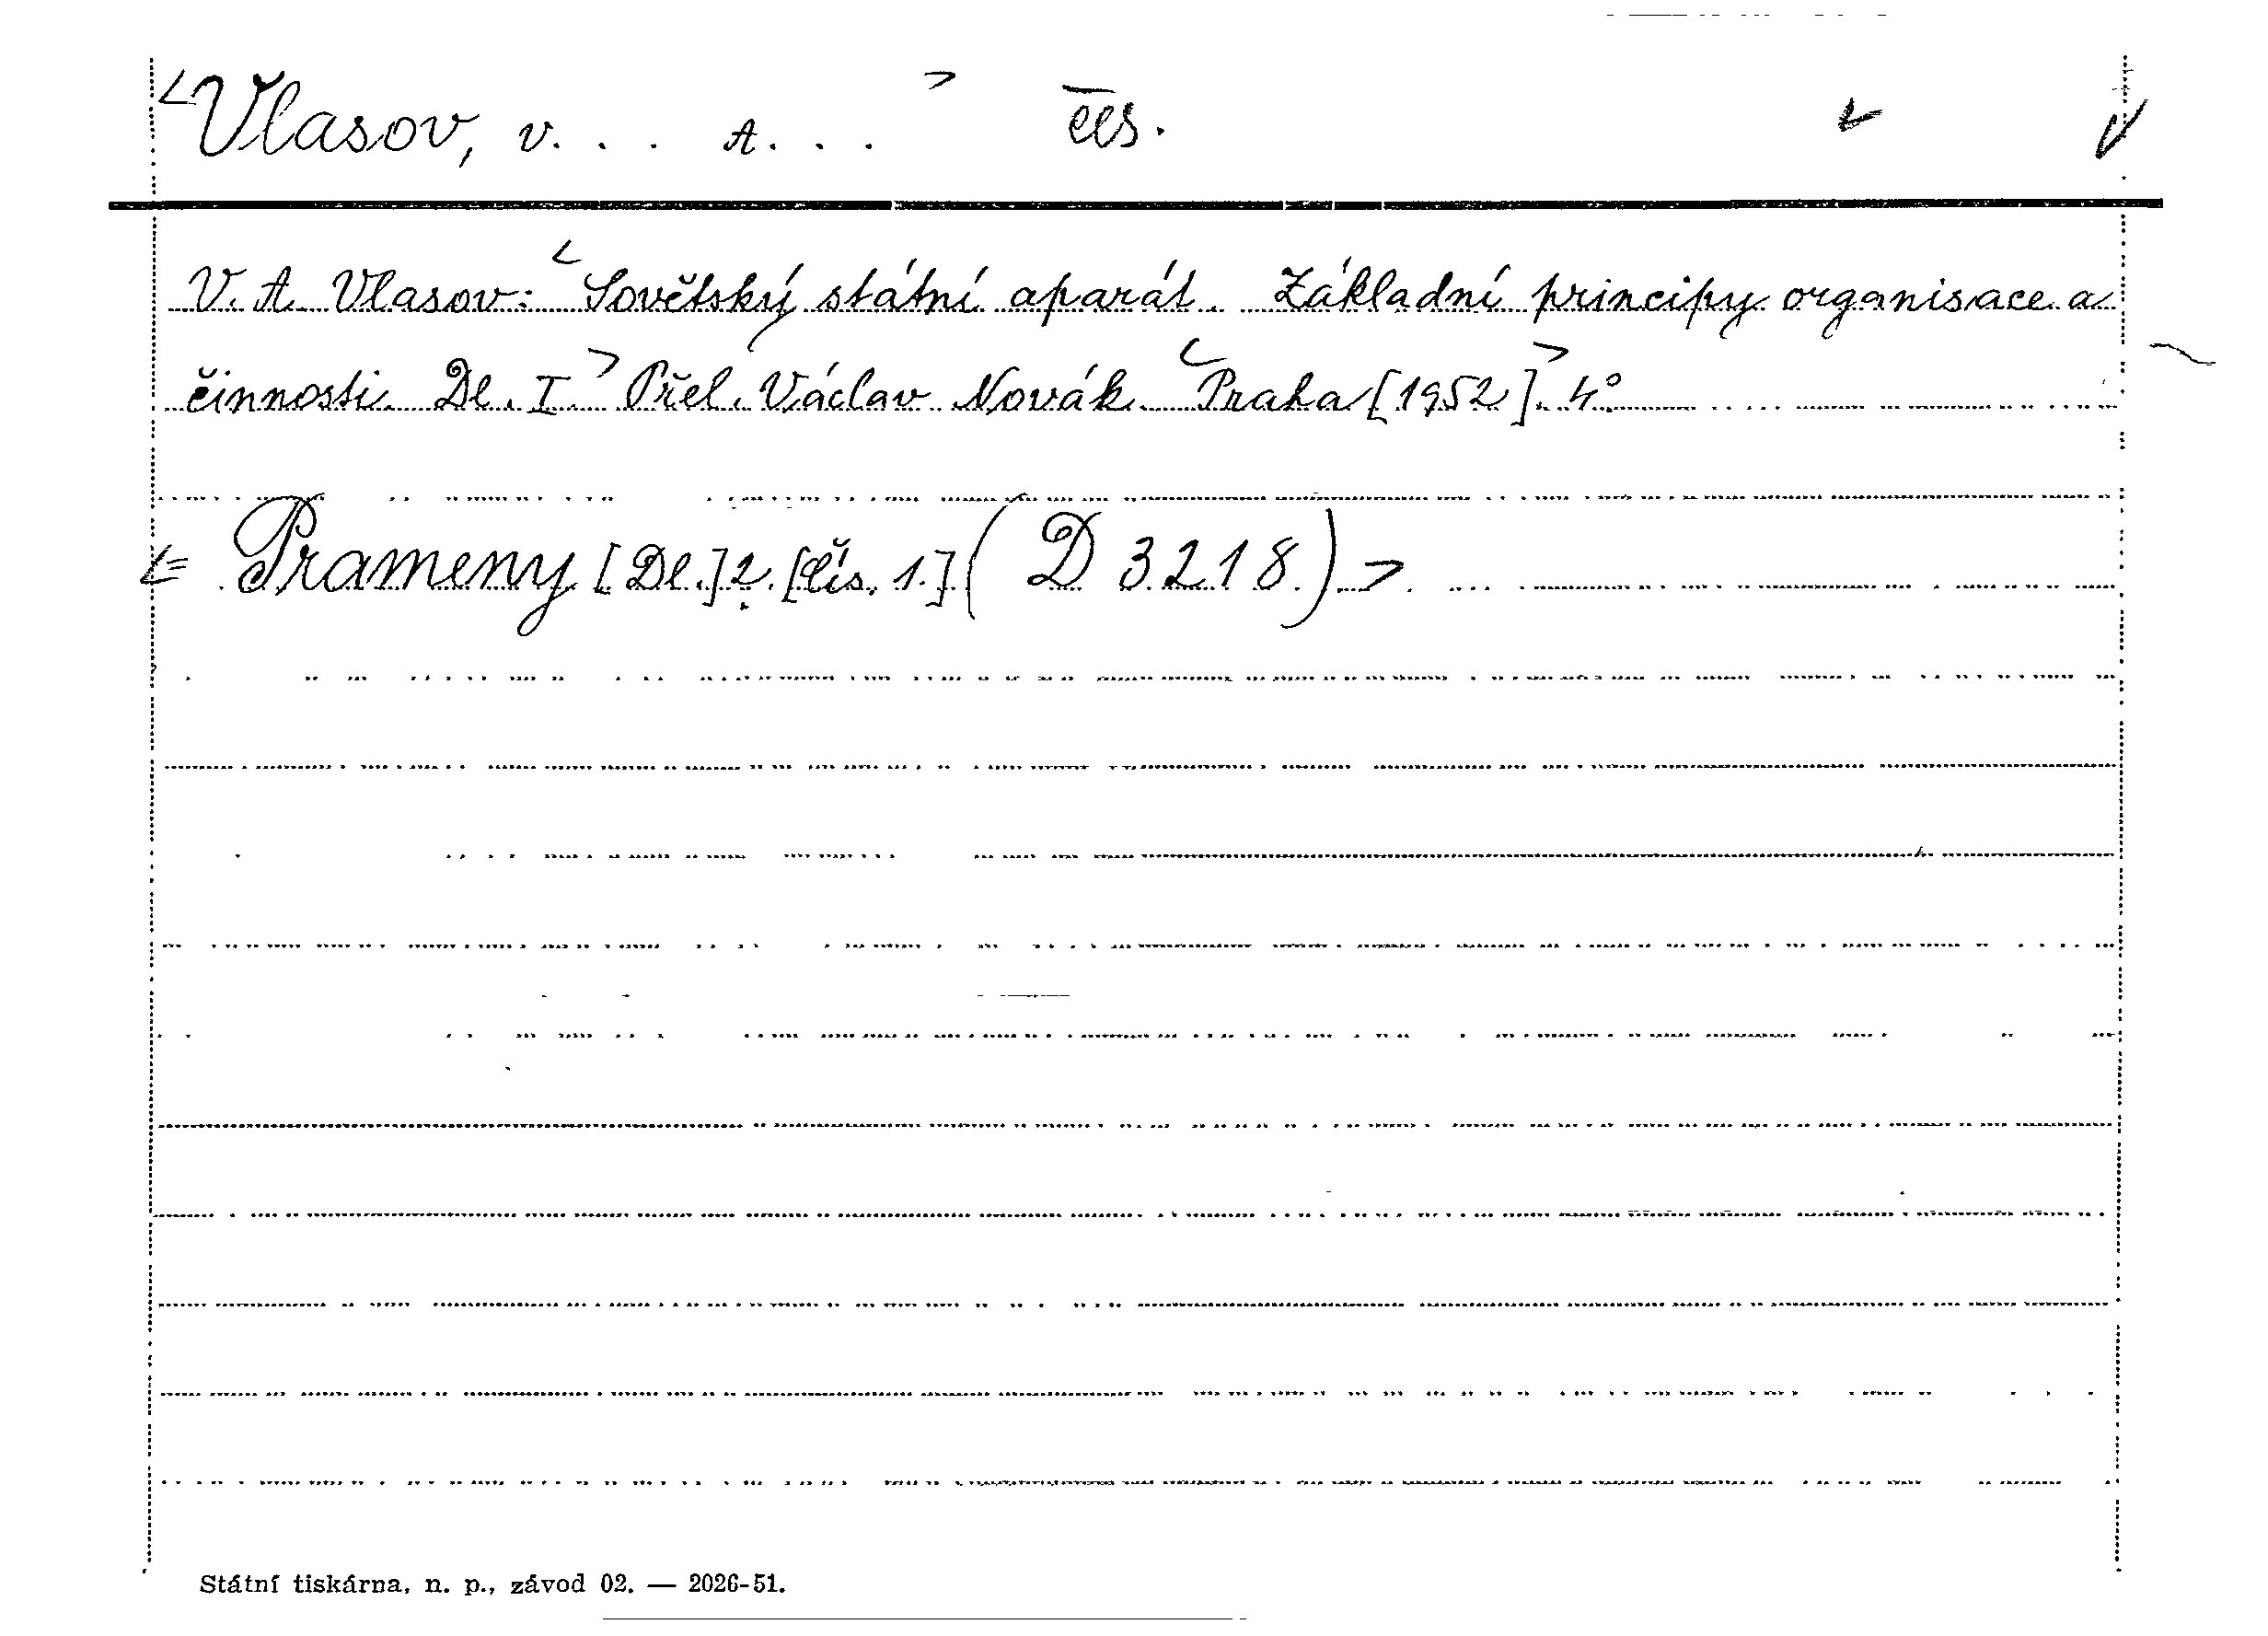 <Vlasov, V. . . . A. . . .> čes.
V. A. Vlasov: <Sovětský státní aparát. Základní principy organisace a
činnosti. Dl. I.> Přel. Václav Novák. <Praha [1952].> 4°
<= Prameny [Dl.] 2. [čís. 1.] (D 3218.)>.
Státní tiskárna, n. p., závod 02. — 2026-51.